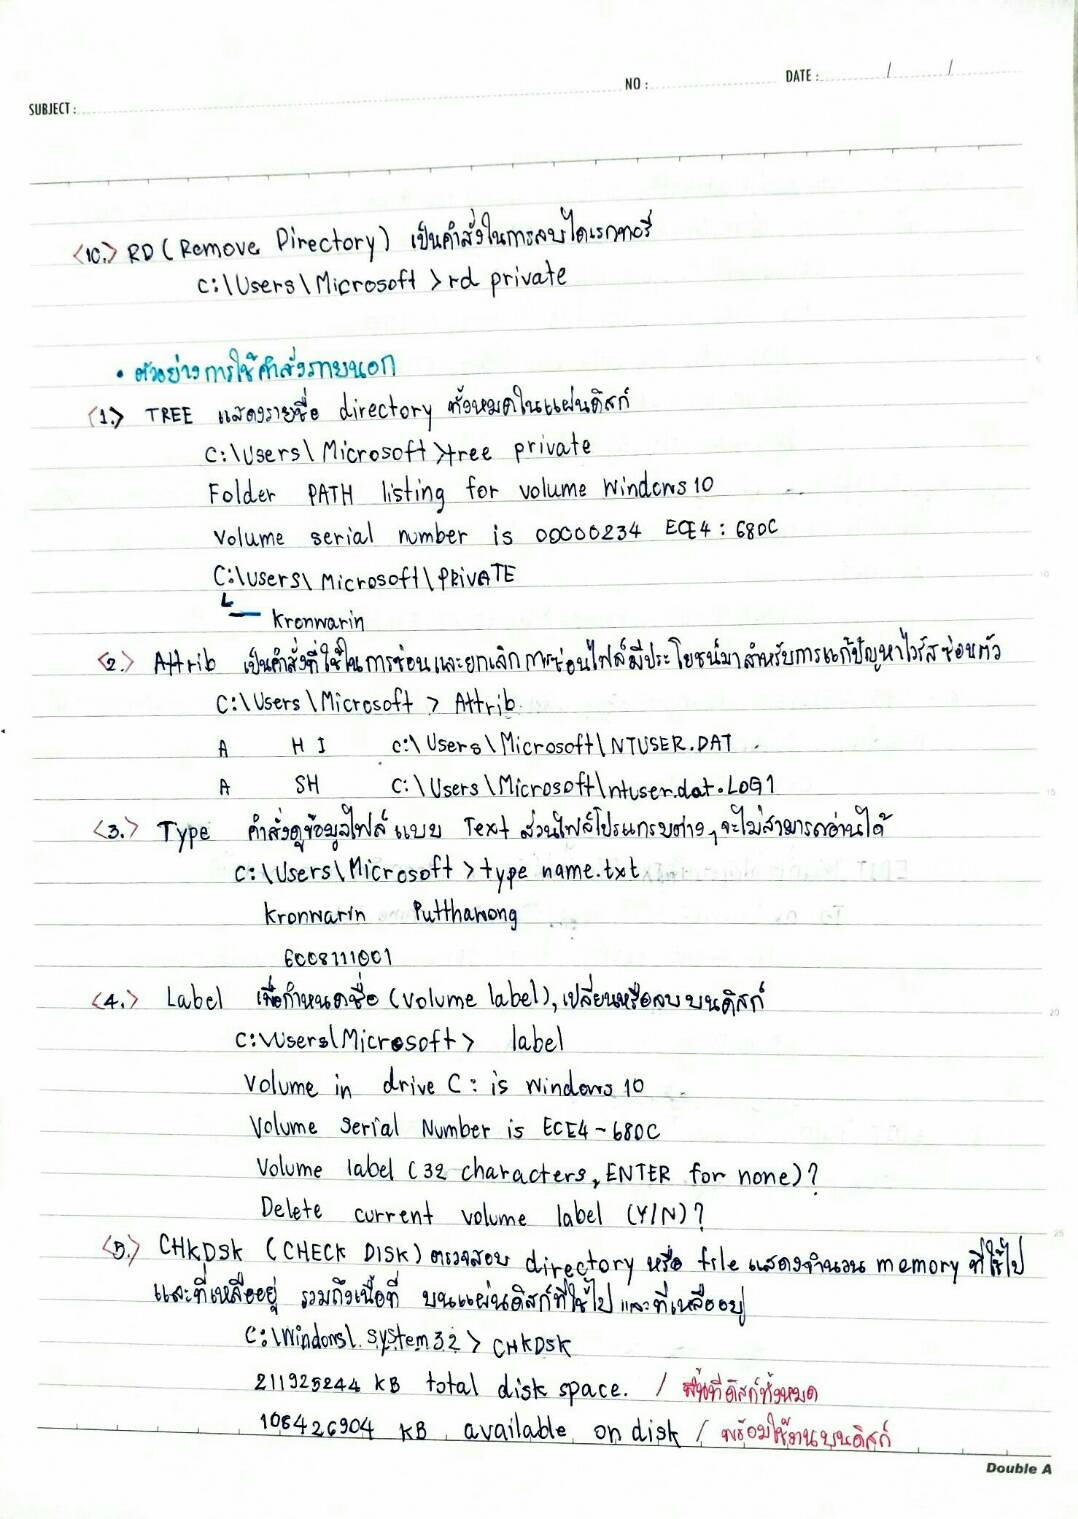 SUBJECT :
NO :
DATE : / /
<10.> RD (Remove Directory) เป็นคำสั่งในการลบไดเรกทอรี
C:\Users\Microsoft >rd private
• ตัวอย่างการใช้คำสั่งภายนอก
<1.> TREE แสดงรายชื่อ directory ทั้งหมดในแผ่นดิสก์
C:\Users\Microsoft>tree private
Folder PATH listing for volume Windows10
Volume serial number is 00000234 ECE4:680C
C:\Users\Microsoft\PRIVATE
Kronwarin
<2.> Attrib เป็นคำสั่งที่ใช้ในการซ่อนและยกเลิกการซ่อนไฟล์มีประโยชน์มาสำหรับการแก้ปัญหาไวรัสซ่อนตัว
C:\Users\Microsoft > Attrib
A H I C:\Users\Microsoft\NTUSER.DAT
A SH C:\Users\Microsoft\ntuser.dat.LOG1
<3.> Type คำสั่งดูข้อมูลไฟล์แบบ Text ส่วนไฟล์โปรแกรมต่างๆจะไม่สามารถอ่านได้
C:\Users\Microsoft >type name.txt
Kronwarin Putthawong
6008111001
<4.> Label เพื่อกำหนดชื่อ (Volume label), เปลี่ยนหรือลบบนดิสก์
C:\Users\Microsoft> label
Volume in drive C: is Windows 10
Volume Serial Number is ECE4-680C
Volume label (32 characters, ENTER for none)?
Delete current volume label (Y/N)?
<5.> CHKDSK (CHECK DISK) ตรวจสอบ directory หรือ file แสดงจำนวน memory ที่ใช้ไป
และที่เหลืออยู่ รวมถึงเนื้อที่ บนแผ่นดิสก์ที่ใช้ไป และที่เหลืออยู่
C:\Windows\system32> CHKDSK
211925244 KB total disk space. / พื้นที่ดิสก์ทั้งหมด
108426904 KB available on disk / พร้อมใช้งานบนดิสก์
Double A